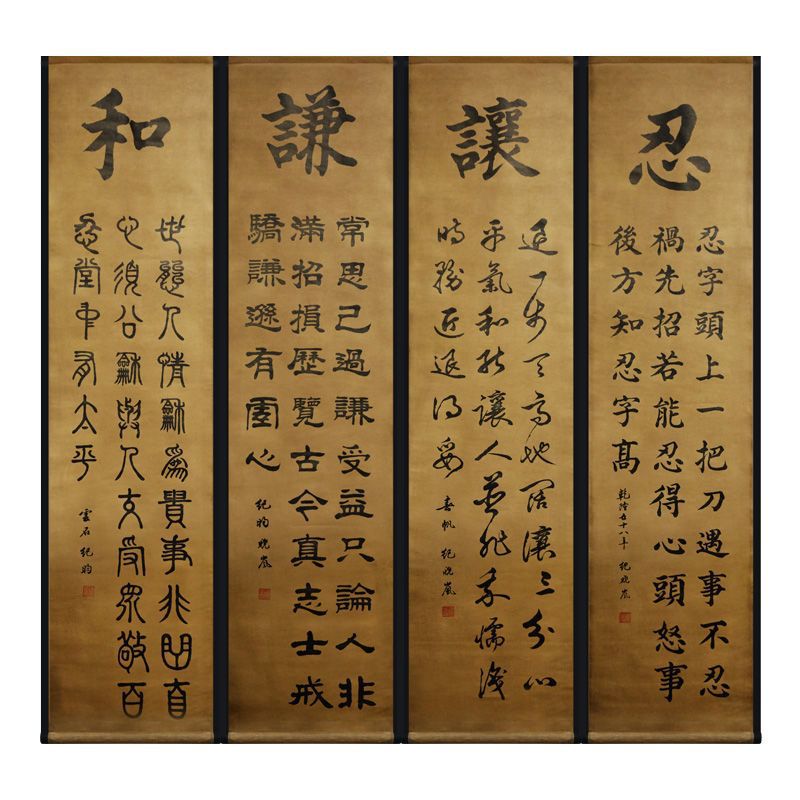 忍
忍字頭上一把刀遇事不忍
禍先招若能忍得心頭怒事
後方知忍字髙
乾隆五十八年 紀曉嵐
讓
退一步天高地闊讓三分心
平氣和能讓人並非我懦識
時務近退得
春帆 紀曉嵐
謙
常思己過謙受益只論人非
滿招損歷覽古今真志士戒
驕謙遜有虛心
紀昀曉嵐
和
世態人情龢為貴事非曲直
心須公龢與人交受眾敬百
忍堂中有太平
雲石 紀昀